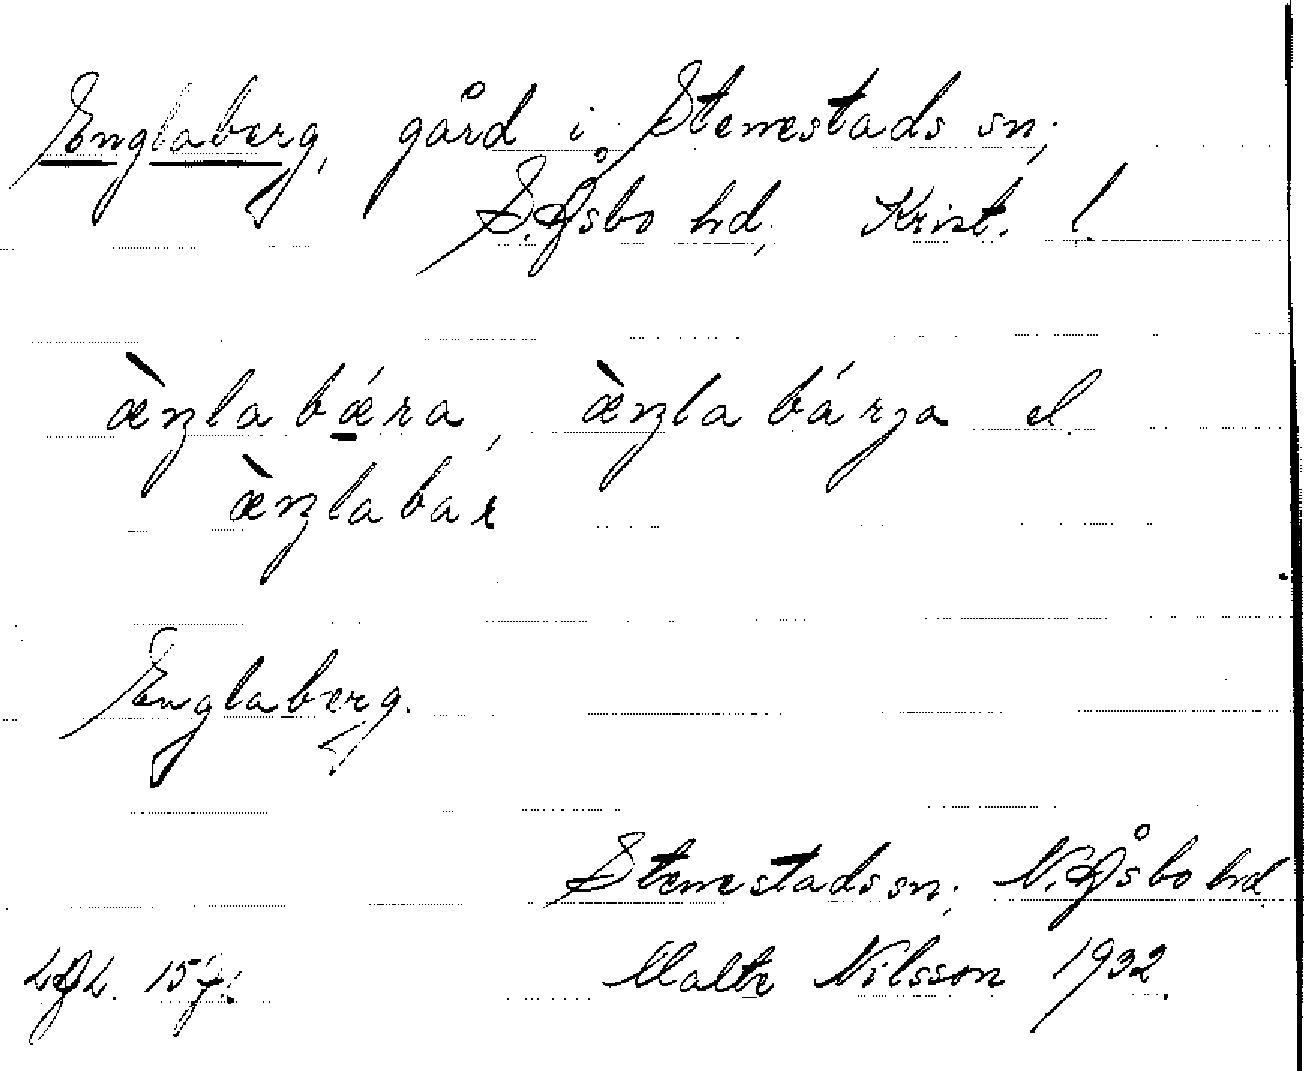 Englaberg, gård i Stenestads sn,
S. Åsbo hd, Krist. l.
æ̀nʒla bǽra, æ̀nʒla bárja el.
æ̀nʒla bar
Englaberg.
Stenestads sn, N. Åsbo hd
Malte Nilsson 1932.